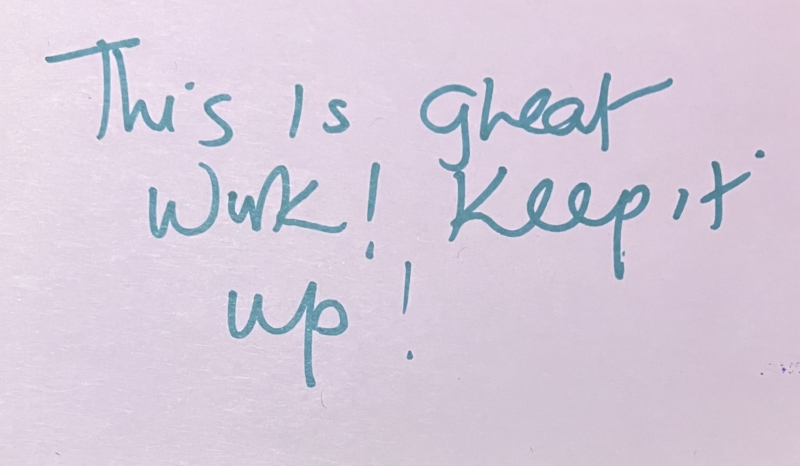 This is great
Work! Keep it
up!